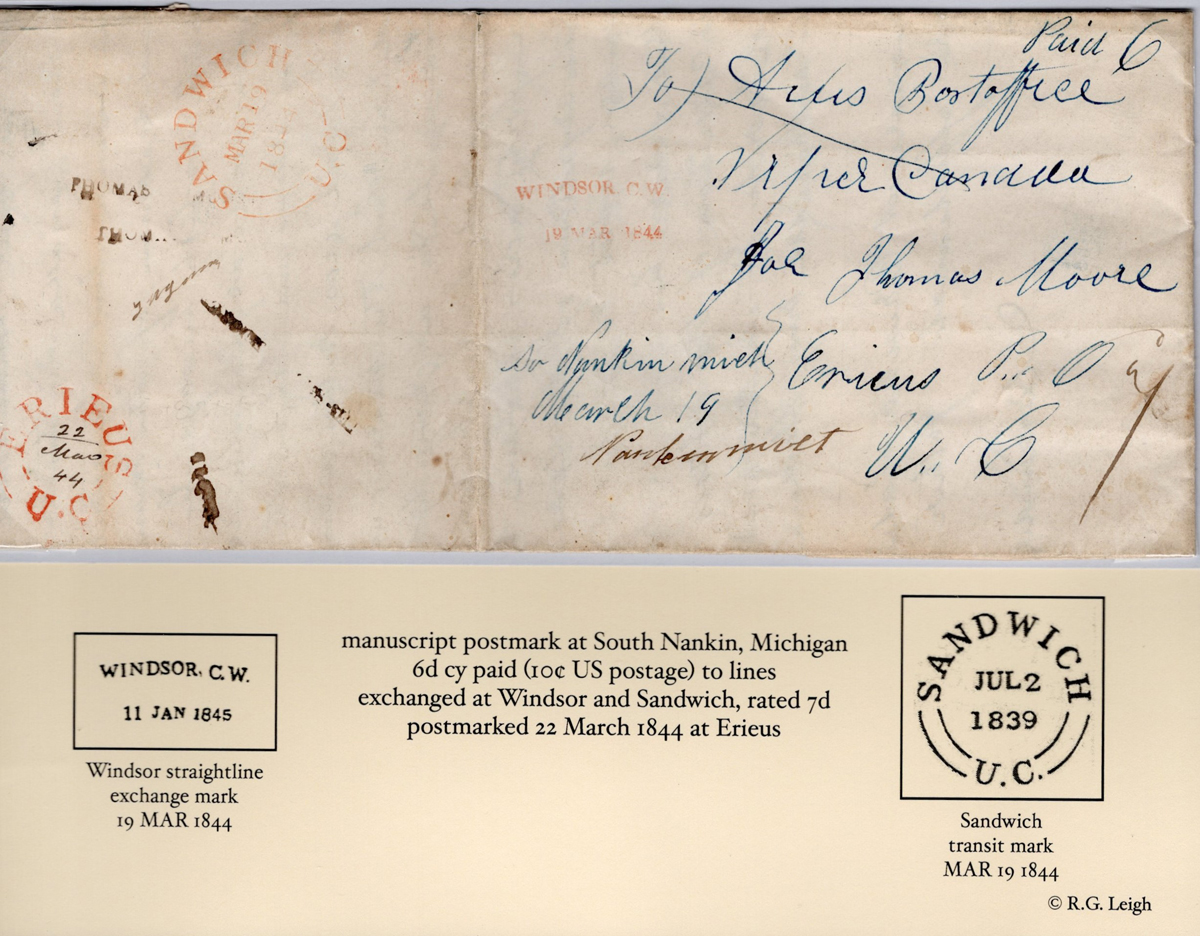 SANDWICH
MAR 19
1844
U.C.
THOMAS
THOM
ERIEUS
22
Mar
44
U.C
Paid 6
To
Postoffice
Upper Canada
WINDSOR. C.W.
19 MAR 1844
For Thomas Moore
So Nankin mich
March 19
Erieus P.. O
7
U.. C
WINDSOR, C.W.
11 JAN 1845
Windsor straightline
exchange mark
19 MAR 1844
manuscript postmark at South Nankin, Michigan
6d cy paid (10¢ US postage) to lines
exchanged at Windsor and Sandwich, rated 7d
postmarked 22 March 1844 at Erieus
SANDWICH
JUL 2
1839
U.C.
Sandwich
transit mark
MAR 19 1844
© R.G. Leigh